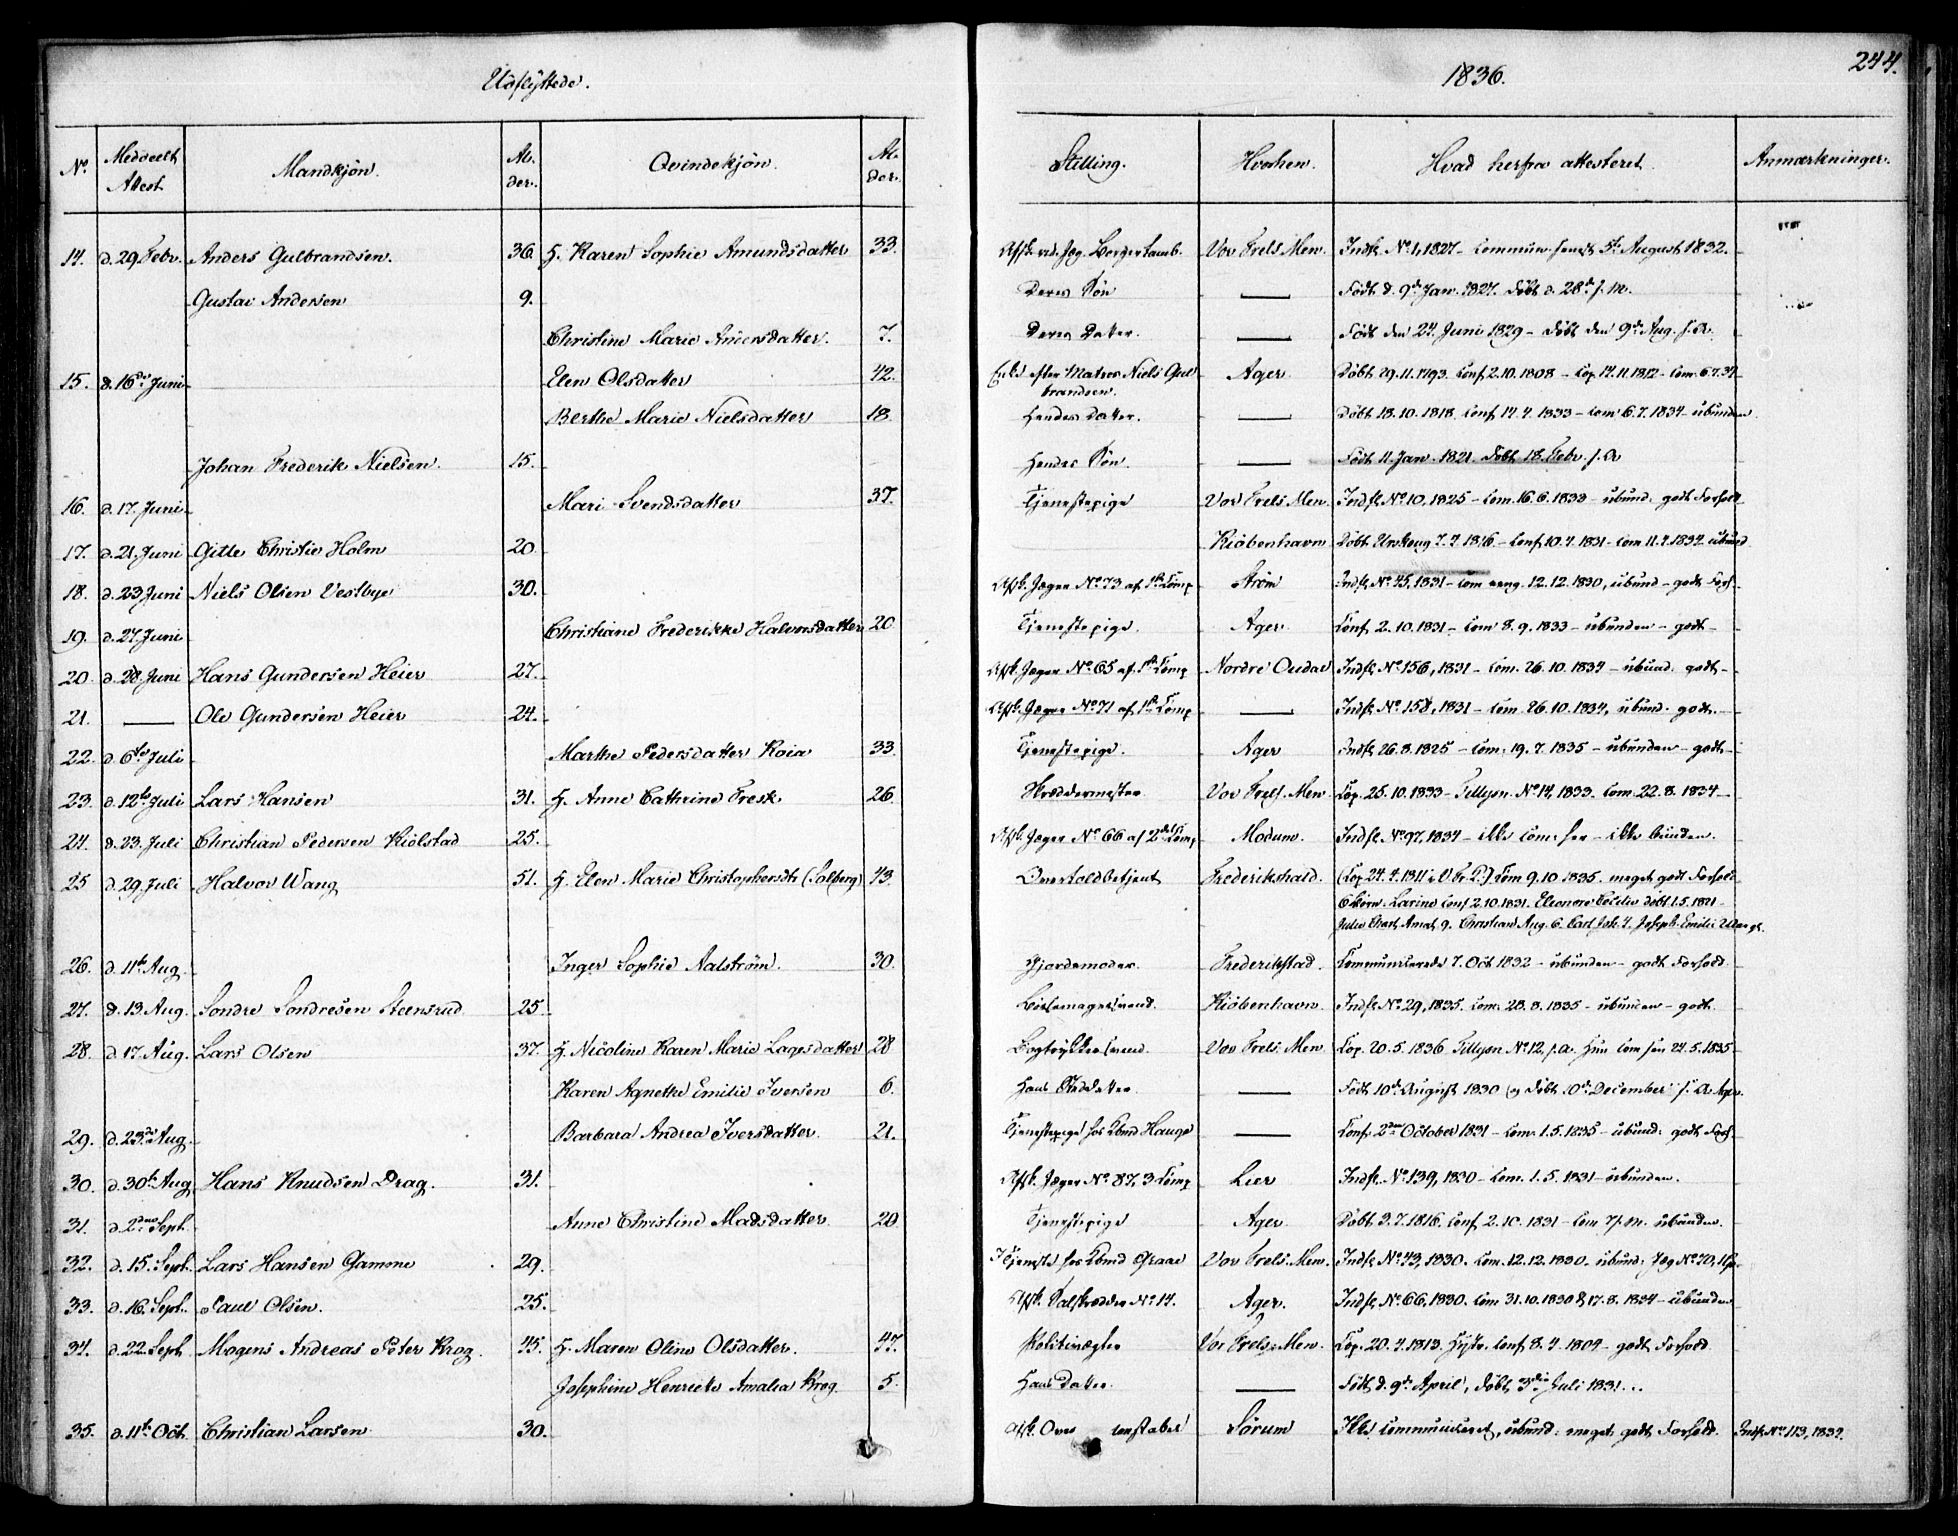 Udflyttede. 1836. 244.
No Meddeelt Attest Mandkjøn. Alder. Qvindekjøn. Alder. Stilling. Hvorhen. Hvad herfra attesteret. Anmærkninger.
14. d. 29 Febr. Anders Gulbrandsen. 36. H. Karen Sophie Amundsdatter 33. Vor Frels Men. Indf. No 1, 1827 - August 1832.
Gustav Andersen 9. Deres Søn — Født d. 9de Jan. 1827. Døbt d. 28de s. M.
Christine Marie Andersdatter. 7. Deres Datter. — Født den 24. Juni 1829 - døbt den 9de Aug. s. A.
15. d. 16de Juni Elen Olsdatter 42. Enke efter Matros Niels Gulbrandsen. Ager Døbt 29.11.1793. Conf. 2.10.1808 - Cop. 12.11.1812 - Com. 6.7.34
Berthe Marie Nielsdatter 18. Hendes Datter. — Døbt 18.10.1818. Conf. 14.4.1833 - Com 6.7.1834 - ubunden
Johan Frederik Nielsen. 15. Hendes Søn. — Født 11. Jan. 1821. Døbt 18. Febr. s. A
16. d. 17. Juni Mari Svendsdatter 37. Tjenestepige Vor Frels Men. Indf. No 10, 1825 - Com. 16.6.1833 - ubund. godt Forhold
17. d. 21. Juni Gitte Christie Holm 20 Kiöbenhavn Døbt Urskoug 7.7.1816 - Conf. 10.4.1831 - Com 11.4.1834 ubund
18. d. 23 Juni Niels Olsen Vestbye 30. Afsk. Jæger No 73 af 1ste Comp Strøm Indf. No 45, 1831 - Com 12.12.1830, ubund - godt Forh.
19. d. 27. Juni Christiane Frederikke Halvorsdatter 20 Tjenestepige. Ager Conf. 2.10.1831 - Com 8.9.1833 - ubunden - godt
20. d. 28. Juni Hans Gundersen Heier 27. Afsk. Jæger No 65 af 1ste Comp Nordre Oudal Indf. No 156, 1831 - Com. 26.10.1834 - ubund. godt
21. — Ole Gundersen Heier 24. Afsk. Jæger No 71 af 1ste Comp — Indf. No 158, 1831 - Com. 26.10.1834, ubund. godt.
22. d. 6te Juli Marthe Pedersdatter Koia 33. Tjenestepige. Ager Indf. 26.8.1825 - Com. 19.7.1835 - ubunden - godt
23. d. 12te Juli Lars Hansen 31. H. Anne Cathrine Fresk 26 Skræddermester Vor Frels. Men. Cop. 25.10.1833 - Tillysn. No 14, 1833. Com. 22.8.1834
24. d. 23. Juli Christian Pedersen Kiölstad 25. Afsk. Jæger No 66 af 2det Comp. Modum. Indf. No 97, 1834 - ikke Com. her - ikke bunden.
25 d. 29. Juli Halvor Wang 51. H. Elen Marie Christophersdtr (Solberg) 43. Overtoldbetjent Frederikshald. (Cop. 24.4.1811 i V Fr. K.) Com 9.10 1835. meget godt Forhold
6 Børn. Larine Conf. 2.10.1831. Eleonore Cecilie døbt 1.5.1821
Julie Charl. Amal. 9. Christian Aug. 6. Carl Joh. 4. Joseph. Emilie 2 Aar gl.
26. d. 11te Aug. Inger Sophie Aalström. 30. Gjordemoder. Frederikstad. Communicerede 7. Oct 1832 - ubunden - godt Forhold
27. d. 13. Aug. Sondre Sondresen Steensrud 25 Kiöbenhavn. Indf. No 29, 1835. Com. 23.8.1835 - ubunden - godt
28. d. 17. Aug. Lars Olsen 37. H. Nicoline Karen Marie Lagesdatter 28 Bogtrykkersvend. Vor Frels Men. Cop. 20.5.1836 Tillysn No 12, s.a. Hun Com her 24.5.1835
Karen Agnethe Emilie Iversen 6. Hans Steddatter — Født 10de August 1830 og døbt December s. A. Ager.
29. d. 23de Aug. Barbara Andrea Iversdatter. 21. Tjenestepige hos Kbmd Hauge — Conf. 2den October 1831 - Com. 1.5.1835 - ubund. godt Forh.
30. d. 30te Aug Hans Knudsen Drag. 31. Afsk. Jæger No 87, 3 Comp Lier Indf. No 139, 1830 - Com. 1.5.1831 - ubunden.
31. d. 2den Sept. Anne Christine Madsdatter 20 Tjenestepige Ager Døbt 3.7.1816. Conf. 2.10.1831 - Com 7 s. M. ubunden.
32. d. 15. Sept. Lars Hansen Gamme 29. I Tjeneste hos Kbmd Graae Vor Frels. Men. Indf. No 43, 1830. Com. 12.12.1830. ubund. Jæg No 70,
33. d. 16. Sept. Paul Olsen. 25. Afsk. No 14. Ager. Indf. No 66, 1830. Com 31.10.1830 & 17.8.1834 - ubunden
34. d. 22. Sept. Mogens Andreas Peter Krog. 45. H. Maren Oline Olsdatter. 47. Politivægter Vor Frels. Men. Cop. 20.4.1813. Conf. 8.4.1804 - godt Forhold
Josephine Henriette Amalia Krog 5. Hans Datter. — Født d. 9de April, døbt 3die Juli 1831.
35. d. 11te Oct. Christian Larsen 30. Sörum Ikke communiceret, ubund. meget godt Forhold. Indf. No 113, 1832.